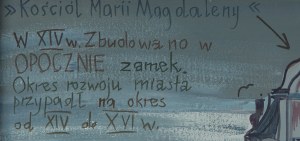 »Kościół Marii Magdaleny«
W XIV w. Zbudowano w
OPOCZNIE zamek.
Okres rozwoju miasta
przypadł na okres
od XIV do XVI w.